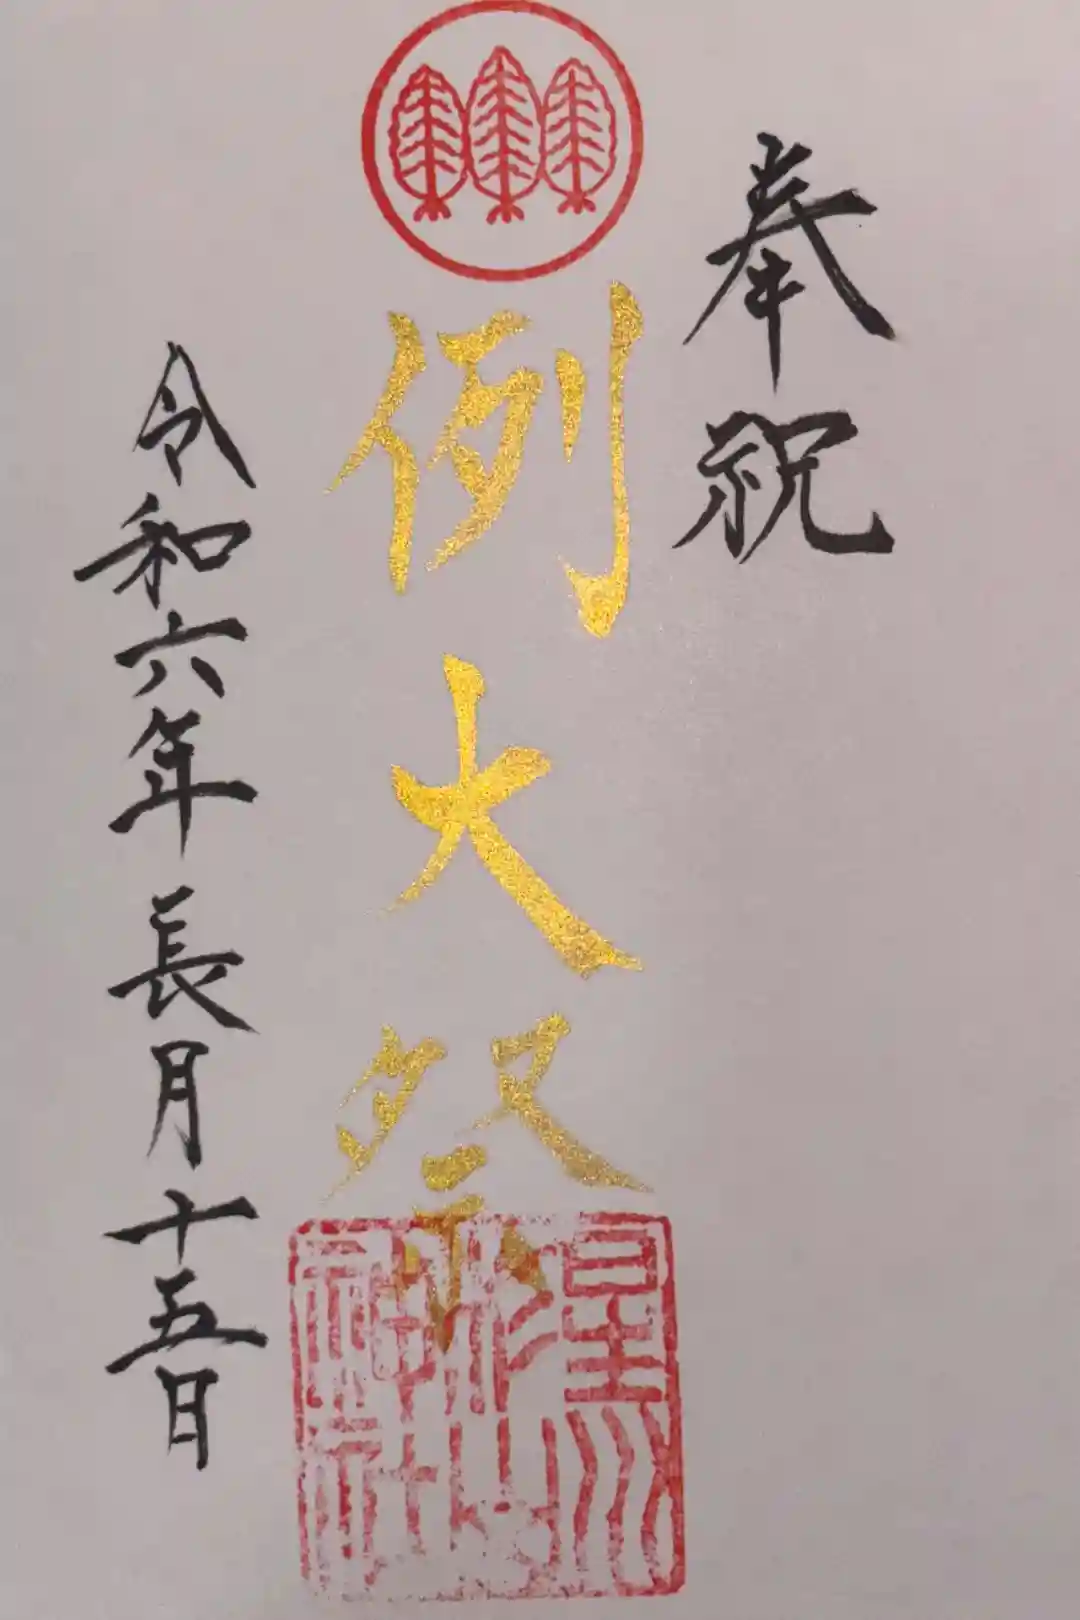 奉祝
例大祭
令和六年長月十五日
星川杉山神社